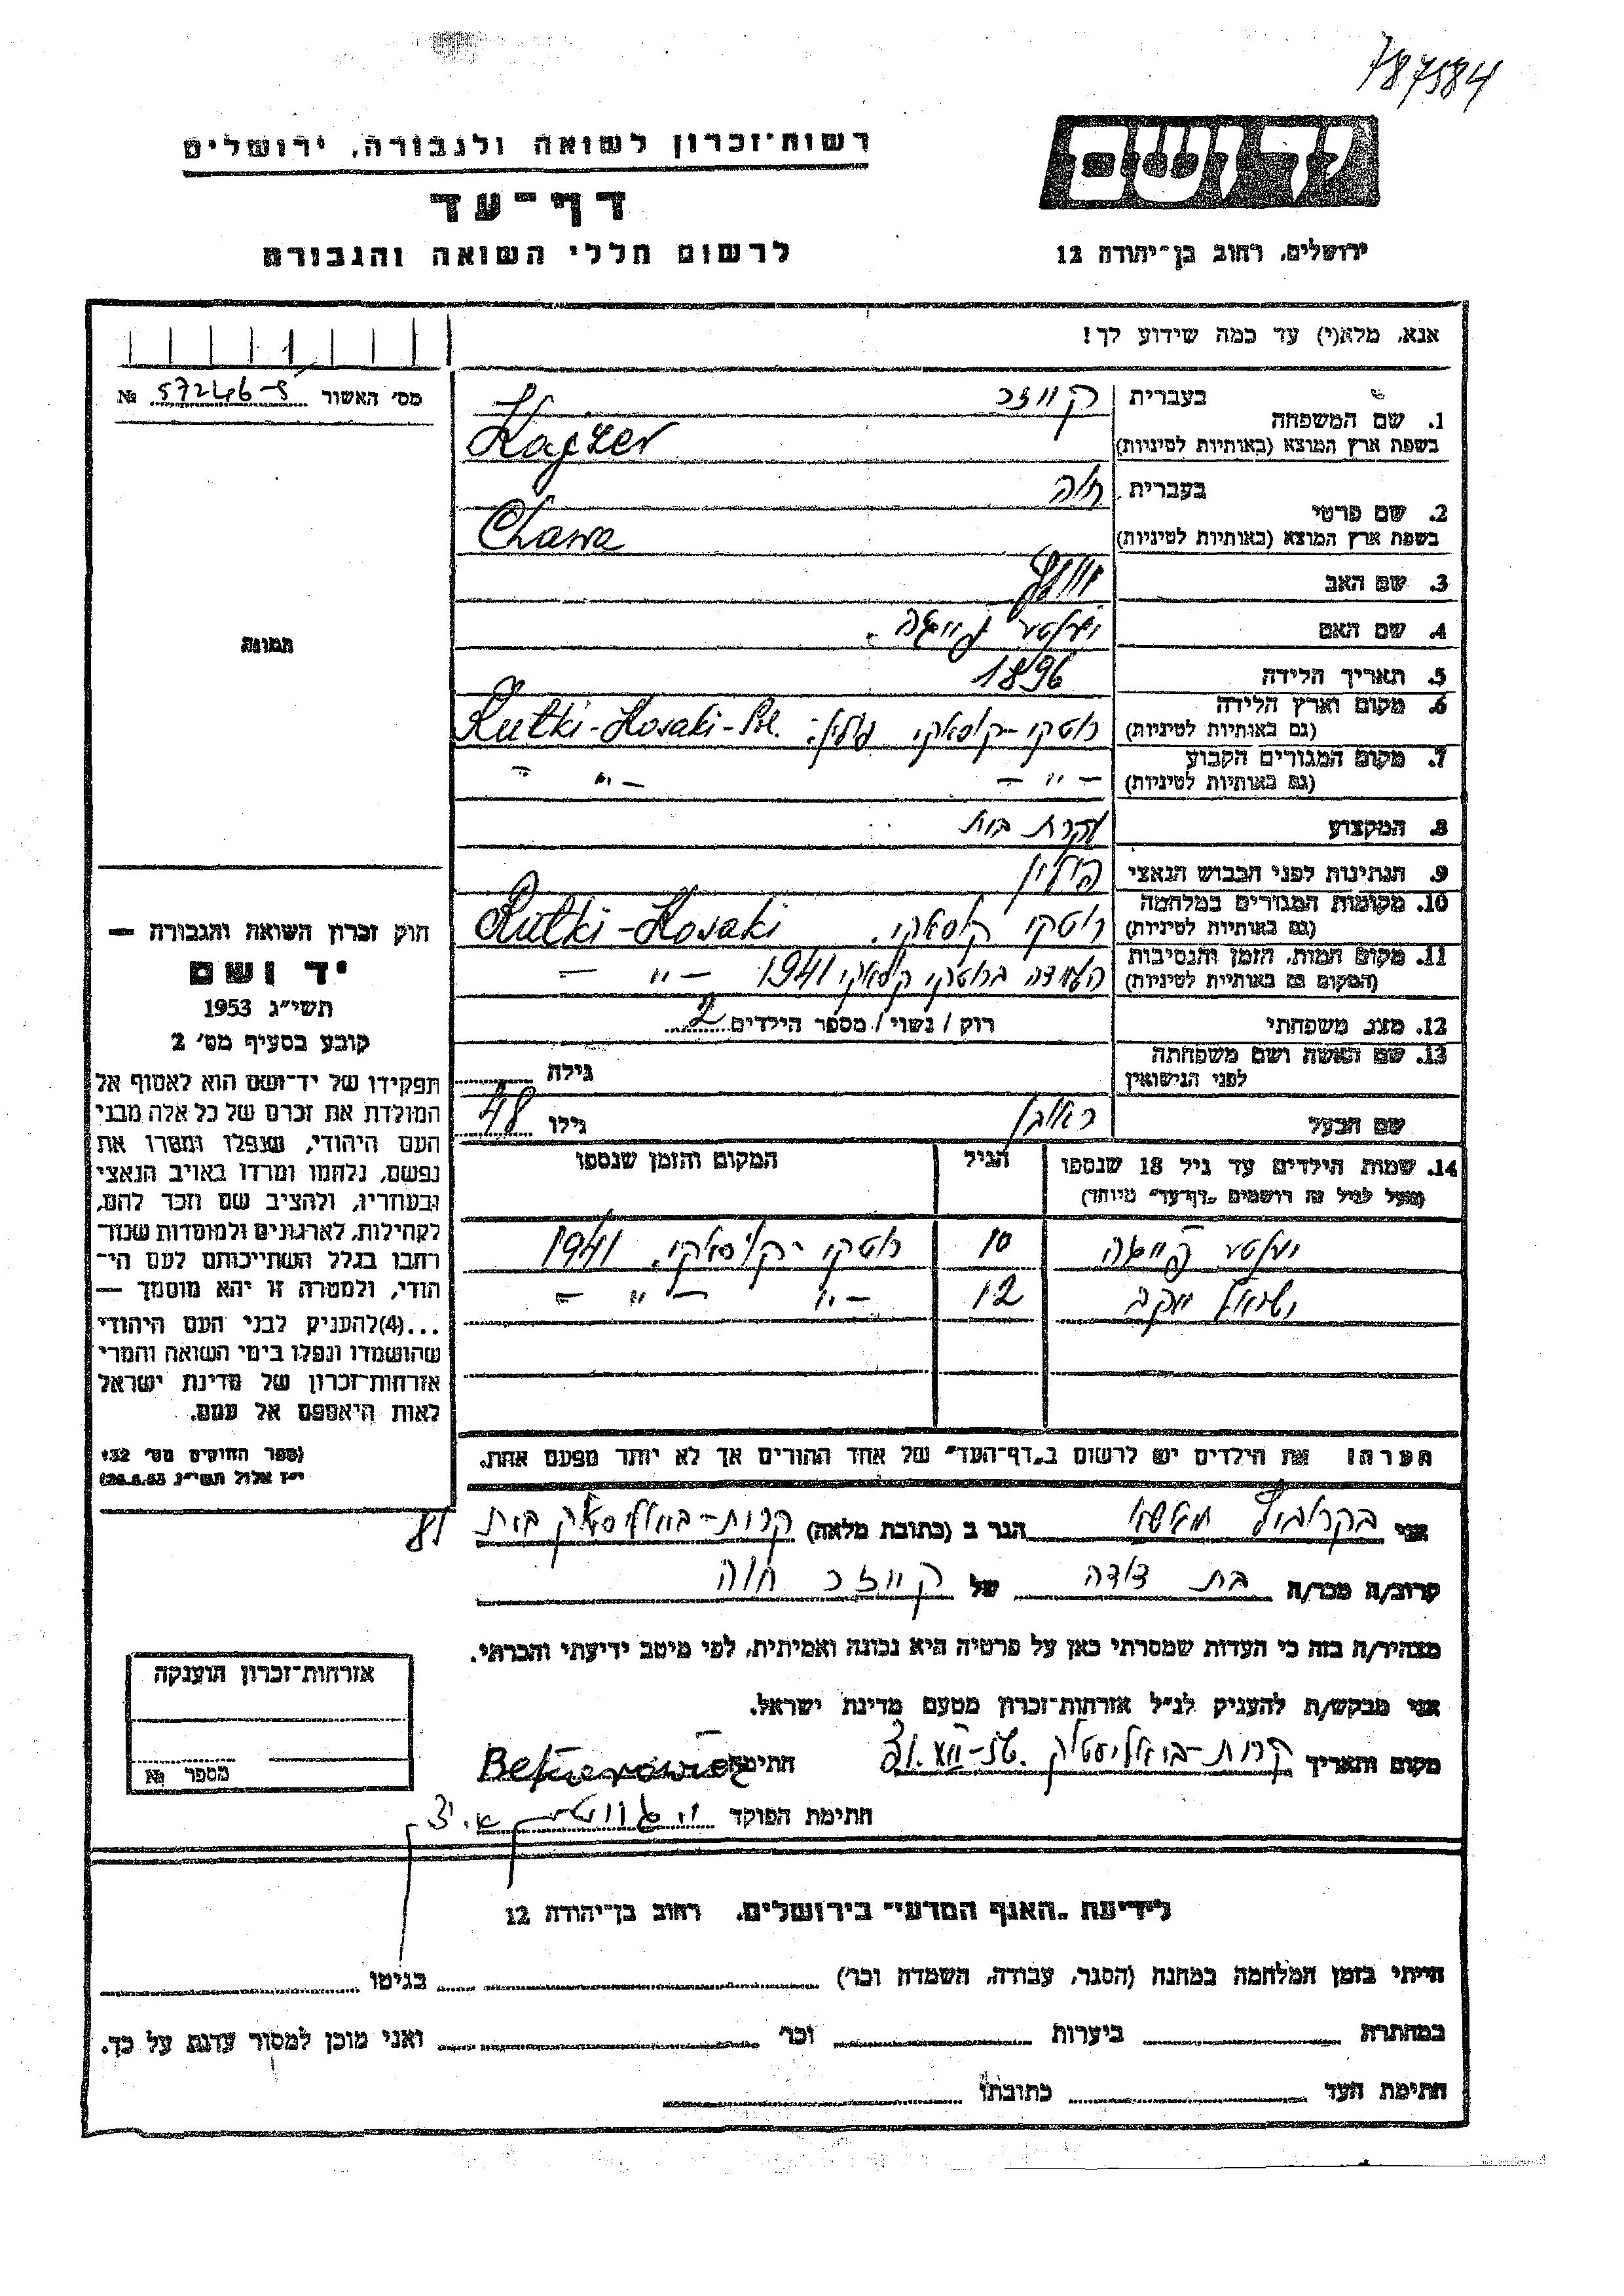 787584
יד ושם
ירושלים, רחוב בן־יהודה 12
רשות־זכרון לשואה ולגבורה, ירושלים
דף־עד
לרשום חללי השואה והגבורה
אנא, מלא(י) עד כמה שידוע לך!
מס' האשור № 57246-9
תמונה
1. שם המשפחה בעברית קייזר
בשפת ארץ המוצא (באותיות לטיניות) Kajzer
2. שם פרטי בעברית חוה
בשפת ארץ המוצא (באותיות לטיניות) Chawa
3. שם האב
4. שם האם
5. תאריך הלידה 1896
6. מקום וארץ הלידה
(גם באותיות לטיניות) רוטקי-קוסאקי פולין. Rutki-Kosaki-Pol.
7. מקום המגורים הקבוע
(גם באותיות לטיניות) - " - - " -
8. המקצוע עקרת בית
9. הנתינות לפני הכבוש הנאצי פולין
10. מקומות המגורים במלחמה
(גם באותיות לטיניות) רוטקי קוסאקי. Rutki-Kosaki
11. מקום המות, הזמן והנסיבות
(המקום גם באותיות לטיניות) ברוטקי קוסאקי 1941 - " -
12. מצב משפחתי רוק / נשוי / מספר הילדים 2
13. שם האשה ושם משפחתה
לפני הנישואין גילה
שם הבעל ראובן גילו 48
14. שמות הילדים עד גיל 18 שנספו הגיל המקום והזמן שנספו
(מעל לגיל זה רושמים "דף־עד" מיוחד)
10 רוטקי קוסאקי. 1941
ישראל יעקב 12 - " - " -
הערה: את הילדים יש לרשום ב"דף־העד" של אחד ההורים אך לא יותר מפעם אחת.
חוק זכרון השואה והגבורה —
יד ושם
תשי"ג 1953
קובע בסעיף מס' 2
תפקידו של יד־ושם הוא לאסוף אל
המולדת את זכרם של כל אלה מבני
העם היהודי, שנפלו ומסרו את
נפשם, נלחמו ומרדו באויב הנאצי
ובעוזריו, ולהציב שם וזכר להם,
לקהילות, לארגונים ולמוסדות שנח־
רבו בגלל השתייכותם לעם היי־
הודי, ולמטרה זו יהא מוסמך —
...(4)להעניק לבני העם היהודי
שהושמדו ונפלו בימי השואה והמרי
אזרחות־זכרון של מדינת ישראל
לאות היאספם אל עמם.
(ספר החוקים מס' 132
י"ז אלול תשי"ג 28.8.53)
אני הגר ב (כתובת מלאה) בית
קרוב/ה מכר/ה בת דודה של קייזר חוה
מצהיר/ה בזה כי העדות שמסרתי כאן על פרטיה היא נכונה ואמיתית, לפי מיטב ידיעתי והכרתי.
אני מבקש/ת להעניק לנ"ל אזרחות־זכרון מטעם מדינת ישראל.
מקום ותאריך חתימה
חתימת הפוקד
אזרחות־זכרון הוענקה
מספר №
לידיעת "האגף המדעי" בירושלים, רחוב בן־יהודה 12
הייתי בזמן המלחמה במחנה (הסגר, עבודה, השמדה וכו') בגיטו
במחתרת ביערות וכו' ואני מוכן למסור עדות על כך.
חתימת העד כתובתו